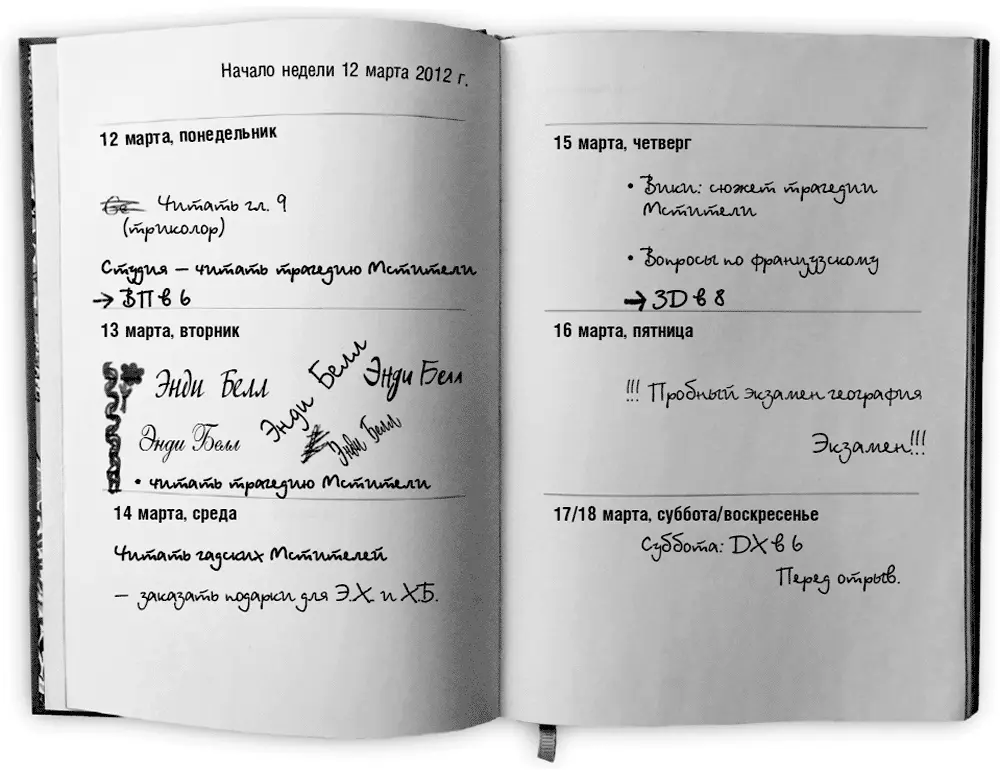 Начало недели 12 марта 2012 г.
12 марта, понедельник
Читать гл. 9
(триколор)
Студия – читать трагедию Мстители
→ ВП в 6
13 марта, вторник
Энди Белл
Энди Белл
Энди Белл
Энди Белл
Энди Белл
• читать трагедию Мстители
14 марта, среда
Читать гадских Мстителей
– заказать подарки для Э.Х. и Х.Б.
15 марта, четверг
• Вики: сюжет трагедии
Мстители
• Вопросы по французскому
→ ЗD в 8
16 марта, пятница
!!! Пробный экзамен география
Экзамен!!!
17/18 марта, суббота/воскресенье
Суббота: DX в 6
Перед отрыв.